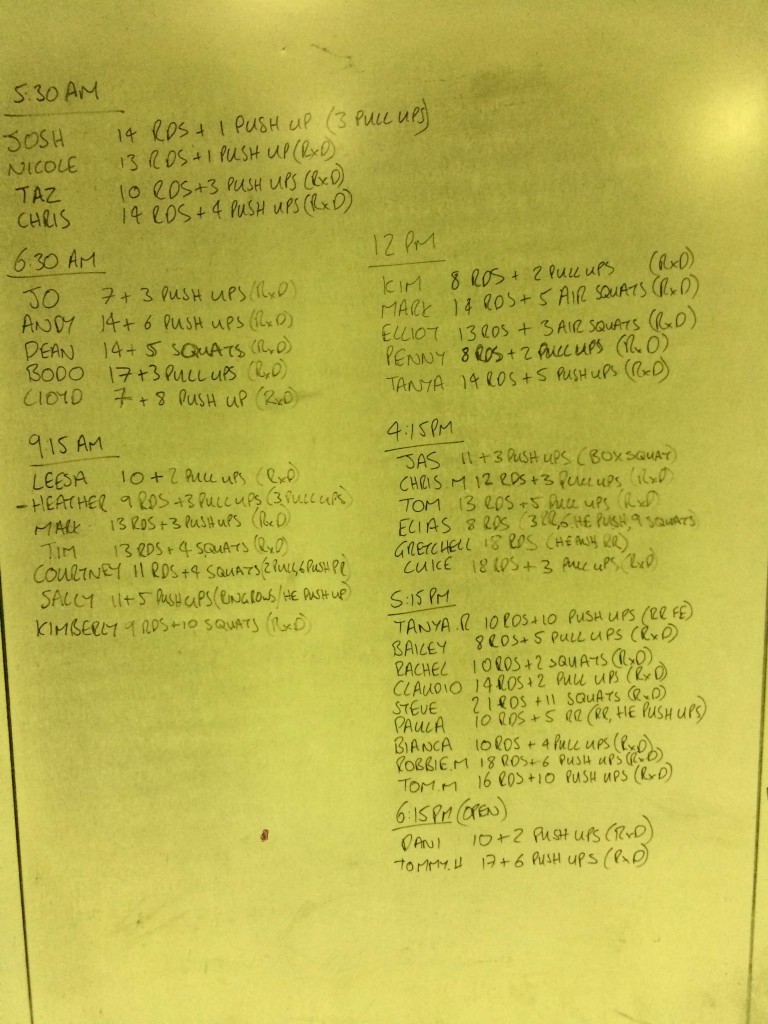 5:30 AM
JOSH 14 RDS + 1 PUSH UP (3 PULL UPS)
NICOLE 13 RDS + 1 PUSH UP (RxD)
TAZ 10 RDS + 3 PUSH UPS (RxD)
CHRIS 14 RDS + 4 PUSH UPS (RxD)
6:30 AM
JO 7 + 3 PUSH UPS (RxD)
ANDY 14 + 6 PUSH UPS (RxD)
DEAN 14 + 5 SQUATS (RxD)
BODO 17 + 3 PULL UPS (RxD)
LLOYD 7 + 8 PUSH UP (RxD)
9:15 AM
LEESA 10 + 2 PULL UPS (RxD)
- HEATHER 9 RDS + 3 PULL UPS (3 PULL UPS)
MARK 13 RDS + 3 PUSH UPS (RxD)
TIM 13 RDS + 4 SQUATS (RxD)
COURTNEY 11 RDS + 4 SQUATS (2 PULL, 6 PUSH
SALLY 11 + 5 PUSH UPS (RING ROWS / HE PUSH UP)
KIMBERLY 9 RDS + 10 SQUATS (RxD)
12 PM
KIM 8 RDS + 2 PULL UPS (RxD)
MARK 14 RDS + 5 AIR SQUATS (RxD)
ELLIOT 13 RDS + 3 AIR SQUATS (RxD)
PENNY 8 RDS + 2 PULL UPS (RxD)
TANYA 14 RDS + 5 PUSH UPS (RxD)
4:15 PM
JAS 11 + 3 PUSH UPS (BOX SQUAT)
CHRIS M 12 RDS + 3 PULL UPS (RxD)
TOM 13 RDS + 5 PULL UPS (RxD)
ELIAS 8 RDS (3 RR, 6 HE PUSH, 9 SQUATS)
GRETCHELL 18 RDS (HE PUSH, RR)
LUKE 18 RDS + 3 PULL UPS (RxD)
5:15 PM
TANYA.R 10 RDS + 10 PUSH UPS (RR FE)
BAILEY 8 RDS + 5 PULL UPS (RxD)
RACHEL 10 RDS + 2 SQUATS (RxD)
CLAUDIO 14 RDS + 2 PULL UPS (RxD)
STEVE 21 RDS + 11 SQUATS (RxD)
PAULA 10 RDS + 5 RR (RR, HE PUSH UPS)
BIANCA 10 RDS + 4 PULL UPS (RxD)
ROBBIE.M 18 RDS + 6 PUSH UPS (RxD)
TOM.M 16 RDS + 10 PUSH UPS (RxD)
6:15 PM (OPEN)
DANI 10 + 2 PUSH UPS (RxD)
TOMMY.H 17 + 6 PUSH UPS (RxD)